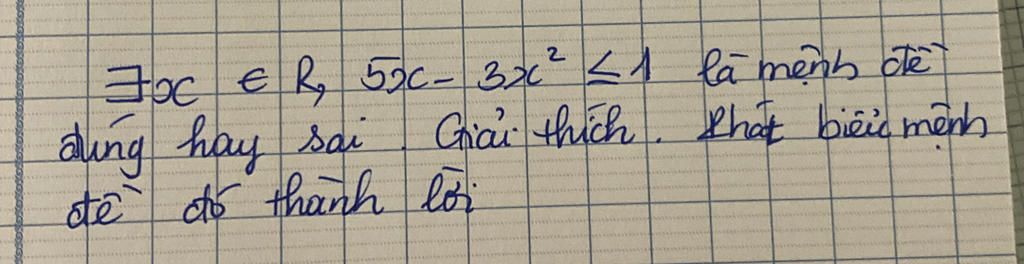 ∃x ∈ R, 5x - 3x² ≤ 1 là mệnh đề
đúng hay sai. Giải thích. Phát biểu mệnh
đề đó thành lời